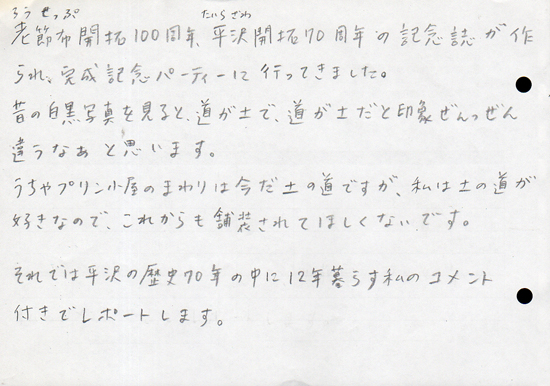 ろうせっぷ たいらさわ
老節布開拓100周年、平沢開拓70周年の記念誌が作
られ、完成記念パーティーに行ってきました。
昔の白黒写真を見ると、道が土で、道が土だと印象ぜんっぜん
違うなぁと思います。
うちやプリン小屋のまわりは今だ土の道ですが、私は土の道が
好きなので、これからも舗装されてほしくないです。
それでは平沢の歴史70年の中に12年暮らす私のコメント
付きでレポートします。